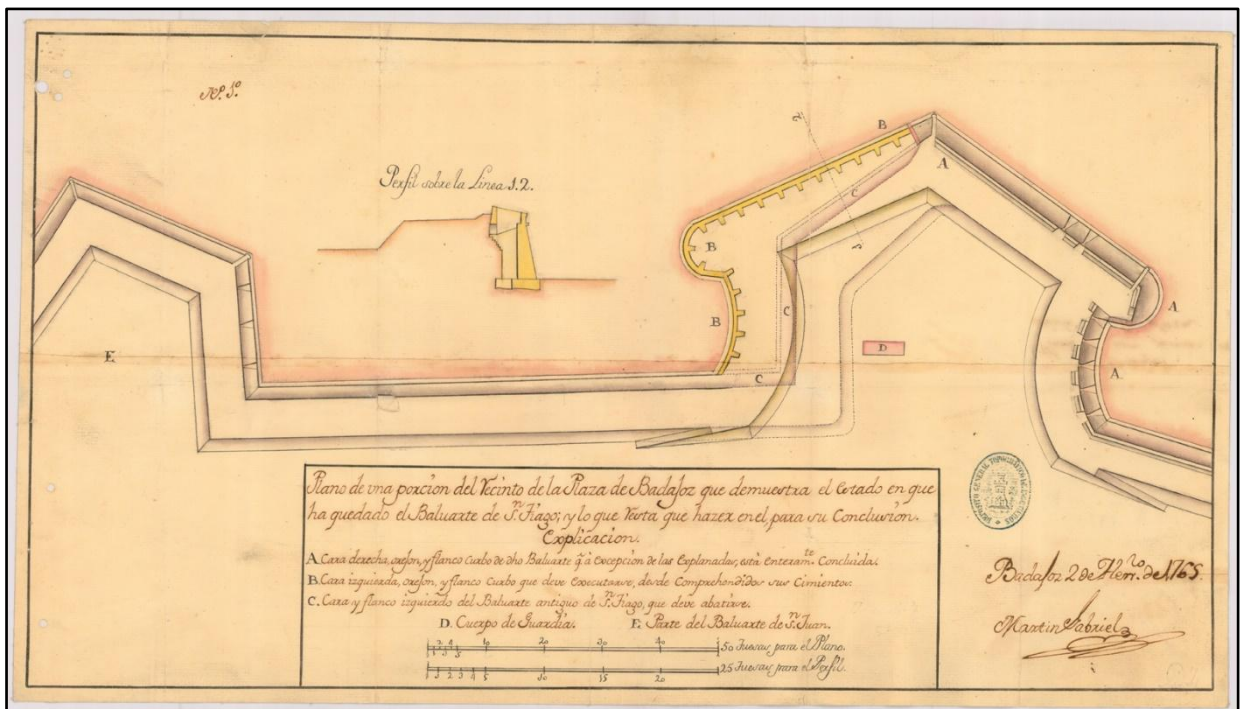 Nº. 1º.
Perfil sobre la Linea 1.2.
2
B
A
C
1
B
A
C
B
D
E
A
C
Plano de vna porcion del Recinto de la Plaza de Badajoz que demuestra el estado en que
ha quedado el Baluarte de Sⁿ. Tiago; y lo que resta que hazer en el, para su Conclusion.
Explicacion.
A. Cara derecha, orejon, y flanco curbo de dho Baluarte q̃ â excepcion de las Explanadas, està enteramᵗᵉ Concluida.
B. Cara izquierda, orejon, y flanco curbo que deve Executarse, desde Comprehendidos sus Cimientos.
C. Cara y flanco izquierdo del Baluarte antiguo de Sⁿ. Tiago, que deve abatirse.
D. Cuerpo de Guardia. E. Parte del Baluarte de Sⁿ. Juan.
1 2 3 4 5 10 20 30 40 50 Tuesas para el Plano.
1 2 3 4 5 10 15 20 25 Tuesas para el Perfil.
Badajoz 2 de Henʳᵒ. de 1765.
Martin Gabriel